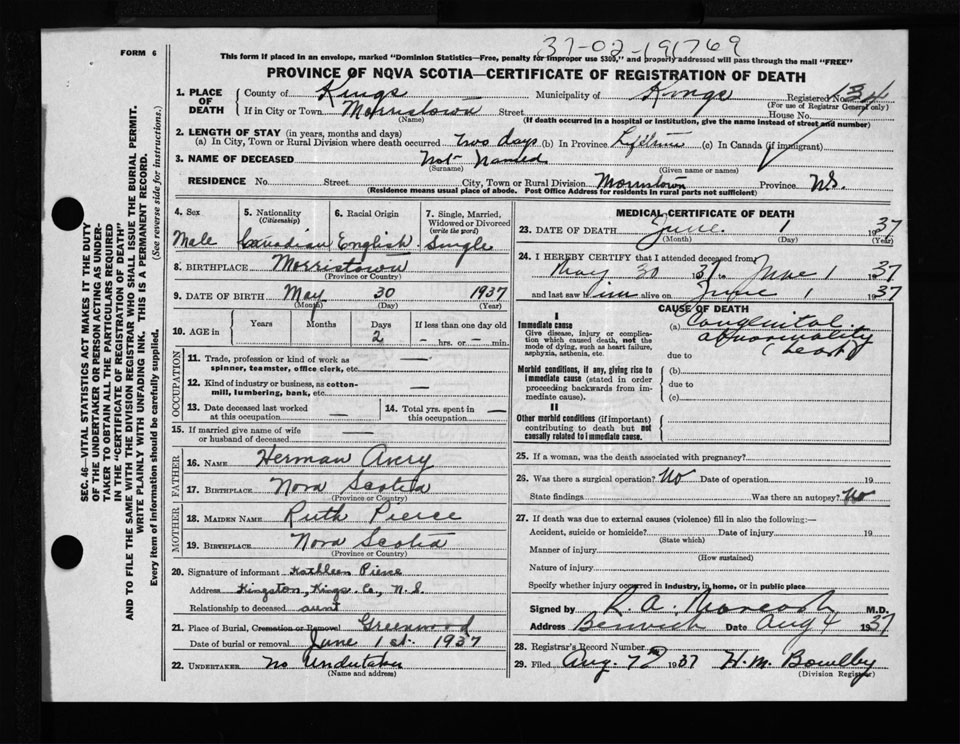 37-02-191769
FORM 6
This form if placed in an envelope, marked "Dominion Statistics—Free, penalty for improper use $300," and properly addressed will pass through the mail "FREE"
PROVINCE OF NOVA SCOTIA—CERTIFICATE OF REGISTRATION OF DEATH
1. PLACE OF DEATH County of Kings Municipality of Kings Registered No. 34
(For use of Registrar General only)
If in City or Town Morristown Street House No.
(Name) (If death occurred in a hospital or institution, give the name instead of street and number)
2. LENGTH OF STAY (in years, months and days)
(a) In City, Town or Rural Division where death occurred two days (b) In Province Lifetime (c) In Canada (if immigrant)
3. NAME OF DECEASED Not Named
(Surname) (Given name or names)
RESIDENCE No. Street City, Town or Rural Division Morristown Province N.S.
(Residence means usual place of abode. Post Office Address for residents in rural parts not sufficient)
4. Sex 5. Nationality (Citizenship) 6. Racial Origin 7. Single, Married, Widowed or Divorced (write the word)
Male Canadian English Single
8. BIRTHPLACE Morristown
(Province or Country)
9. DATE OF BIRTH May 30 1937
(Month) (Day) (Year)
10. AGE in Years Months Days If less than one day old
2 - hrs. or - min.
OCCUPATION
11. Trade, profession or kind of work as spinner, teamster, office clerk, etc. —
12. Kind of industry or business, as cotton-mill, lumbering, bank, etc. —
13. Date deceased last worked at this occupation — 14. Total yrs. spent in this occupation —
15. If married give name of wife or husband of deceased —
FATHER
16. NAME Herman Avery
17. BIRTHPLACE Nova Scotia
(Province or Country)
MOTHER
18. MAIDEN NAME Ruth Pierce
19. BIRTHPLACE Nova Scotia
(Province or Country)
20. Signature of informant Kathleen Pierce
Address Kingston, Kings Co., N.S.
Relationship to deceased aunt
21. Place of Burial, Cremation or Removal Greenwood
Date of burial or removal June 1st. 1937
22. UNDERTAKER No Undertaker
(Name and address)
MEDICAL CERTIFICATE OF DEATH
23. DATE OF DEATH June 1 1937
(Month) (Day) (Year)
24. I HEREBY CERTIFY that I attended deceased from
May 30 1937 to June 1 1937
and last saw him alive on June 1 1937
CAUSE OF DEATH
I
Immediate cause
Give disease, injury or complication which caused death, not the mode of dying, such as heart failure, asphyxia, asthenia, etc.
(a) Congenital abnormality (heart)
due to
Morbid conditions, if any, giving rise to immediate cause (stated in order proceeding backwards from immediate cause).
(b)
due to
(c)
II
Other morbid conditions (if important) contributing to death but not causally related to immediate cause.
25. If a woman, was the death associated with pregnancy?
26. Was there a surgical operation? No Date of operation 19
State findings Was there an autopsy? No
27. If death was due to external causes (violence) fill in also the following:—
Accident, suicide or homicide? Date of injury 19
(State which)
Manner of injury
(How sustained)
Nature of injury
Specify whether injury occurred in industry, in home, or in public place
Signed by R. A. M.D.
Address Berwick Date Aug 4 1937
28. Registrar's Record Number
29. Filed Aug. 7 1937 H. M. Bowlby
(Division Registrar)
SEC. 46—VITAL STATISTICS ACT MAKES IT THE DUTY
OF THE UNDERTAKER OR PERSON ACTING AS UNDER-
TAKER TO OBTAIN ALL THE PARTICULARS REQUIRED
IN THE "CERTIFICATE OF REGISTRATION OF DEATH"
AND TO FILE THE SAME WITH THE DIVISION REGISTRAR WHO SHALL ISSUE THE BURIAL PERMIT.
WRITE PLAINLY WITH UNFADING INK. THIS IS A PERMANENT RECORD.
Every item of information should be carefully supplied. (See reverse side for instructions.)